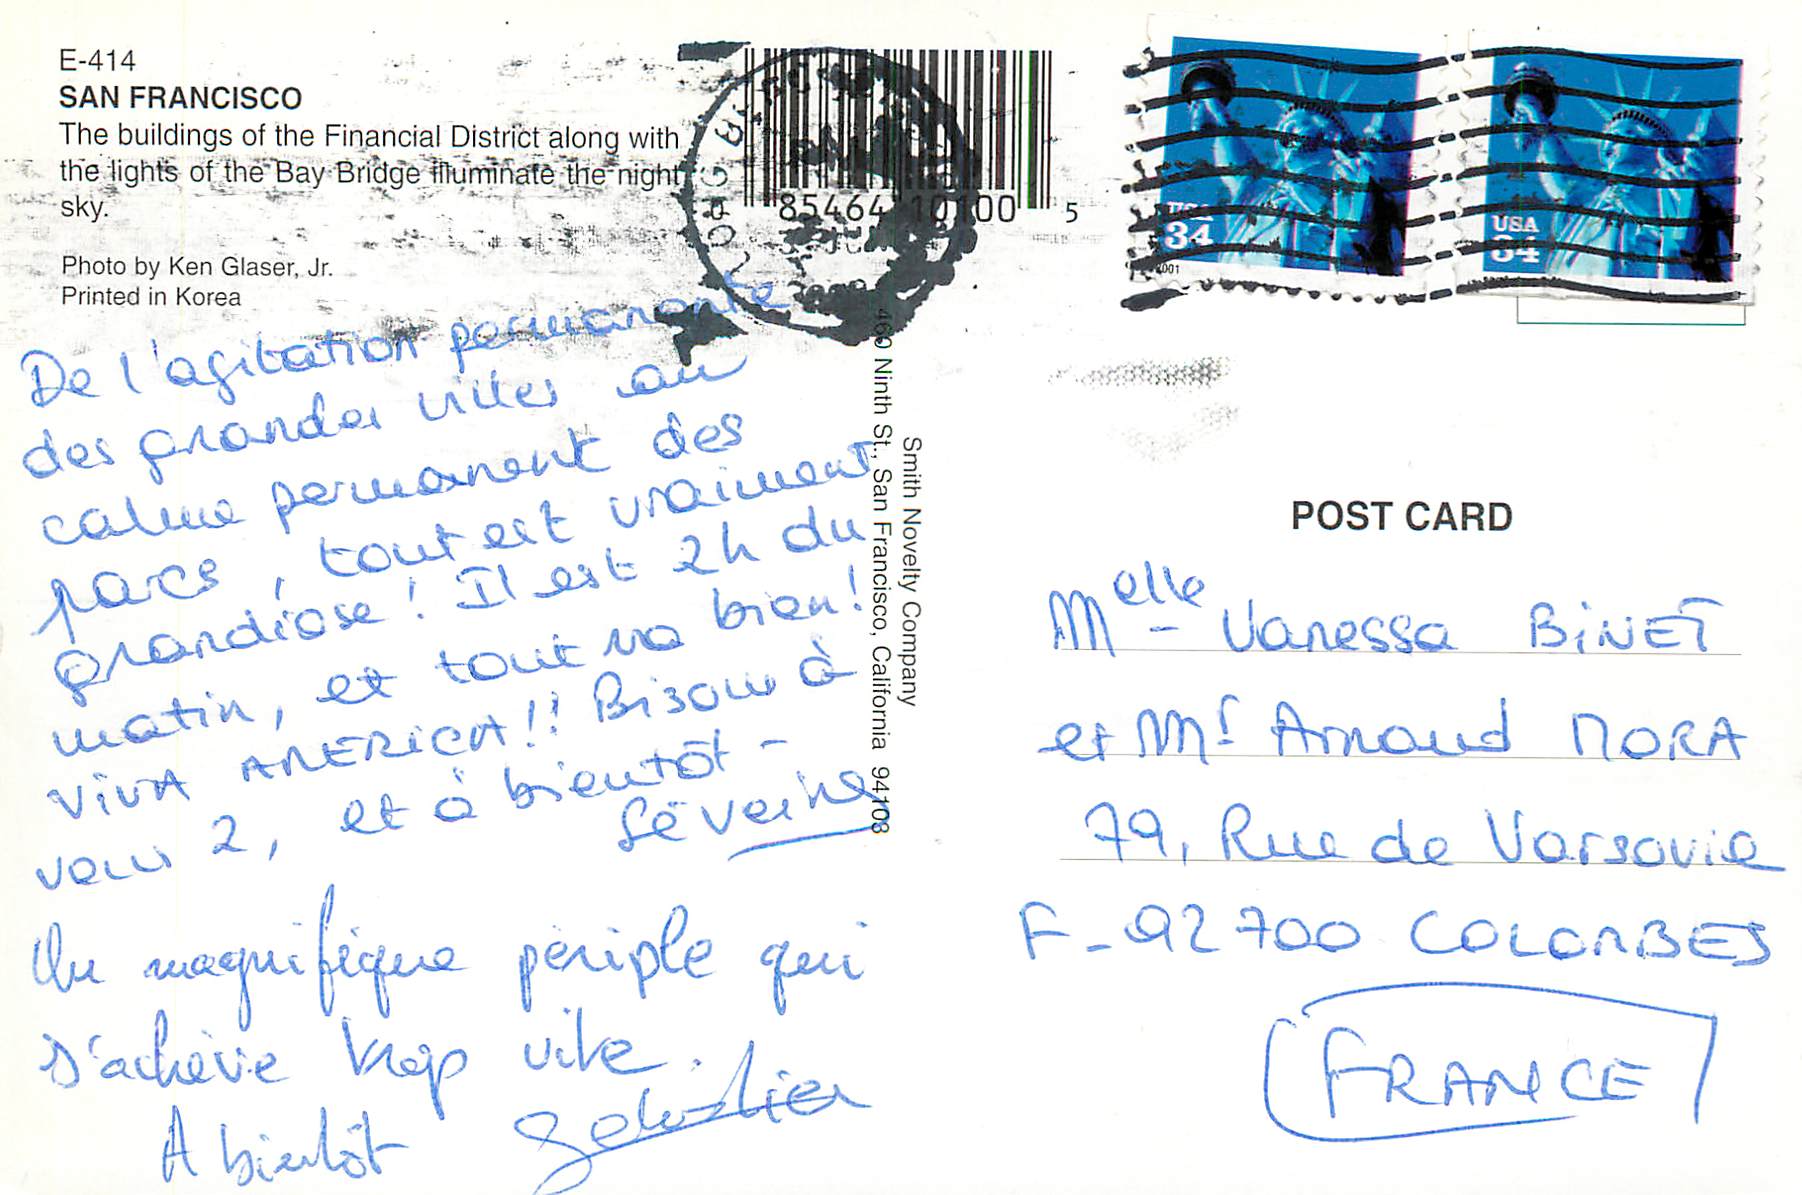 E-414
SAN FRANCISCO
The buildings of the Financial District along with
the lights of the Bay Bridge illuminate the night
sky.
Photo by Ken Glaser, Jr.
Printed in Korea
85464 10100 5
USA
34
2001
USA
34
De l'agitation permanente
des grandes villes au
calme permanent des
parcs, tout est vraiment
grandiose! Il est 2h du
matin, et tout va bien!
VIVA AMERICA!! Bisous à
vous 2, et à bientôt -
Séverine
Un magnifique périple qui
s'achève trop vite.
A bientôt Sébastien
Smith Novelty Company
460 Ninth St., San Francisco, California 94103
POST CARD
Melle Vanessa BINET
et Mr Arnaud MORA
79, Rue de Varsovie
F-92700 COLOMBES
FRANCE